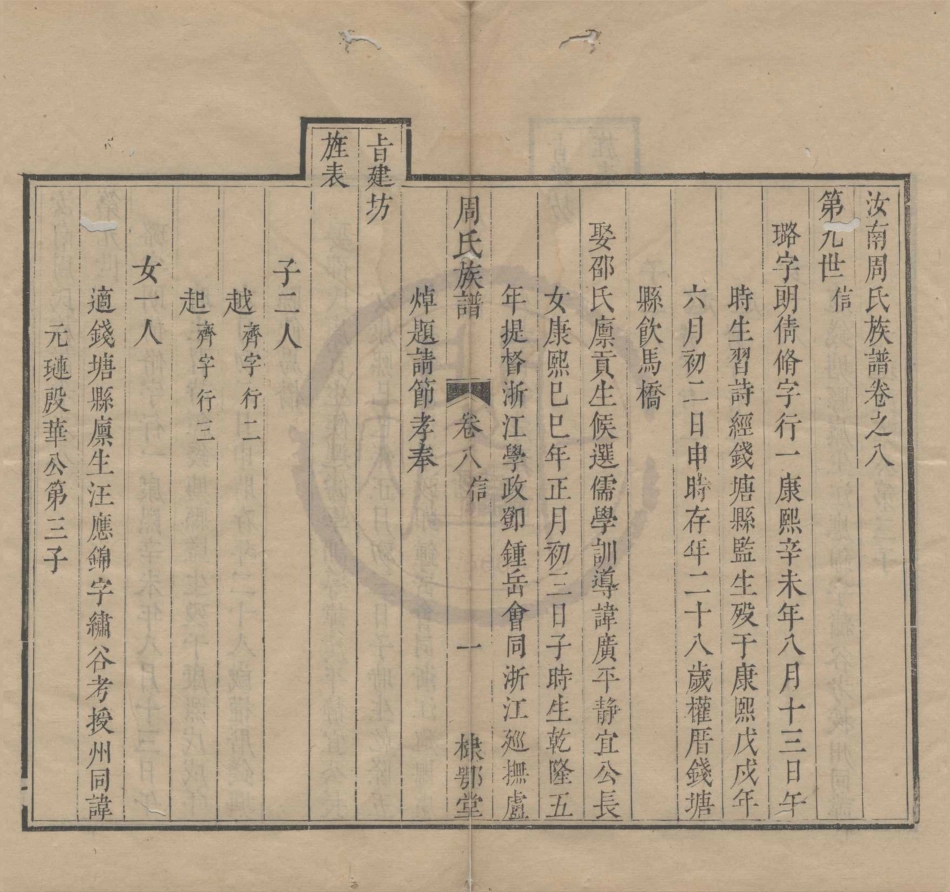 汝南周氏族譜卷之八
第九世 信
璐字明倩脩字行一康熙辛未年八月十三日午
時生習詩經錢塘縣監生歿于康熙戊戌年
六月初二日申時存年二十八歲權厝錢塘
縣飲馬橋
娶邵氏廪貢生候選儒學訓導諱廣平靜宜公長
女康熙己巳年正月初三日子時生乾隆五
年提督浙江學政鄧鍾岳會同浙江廵撫盧
焯題請節孝奉
周氏族譜 卷八 信 一 棣鄂堂
旨建坊
旌表
子二人
越 齊字行二
起 齊字行三
女一人
適錢塘縣廪生汪應錦字繡谷考授州同諱
元璉殷華公第三子